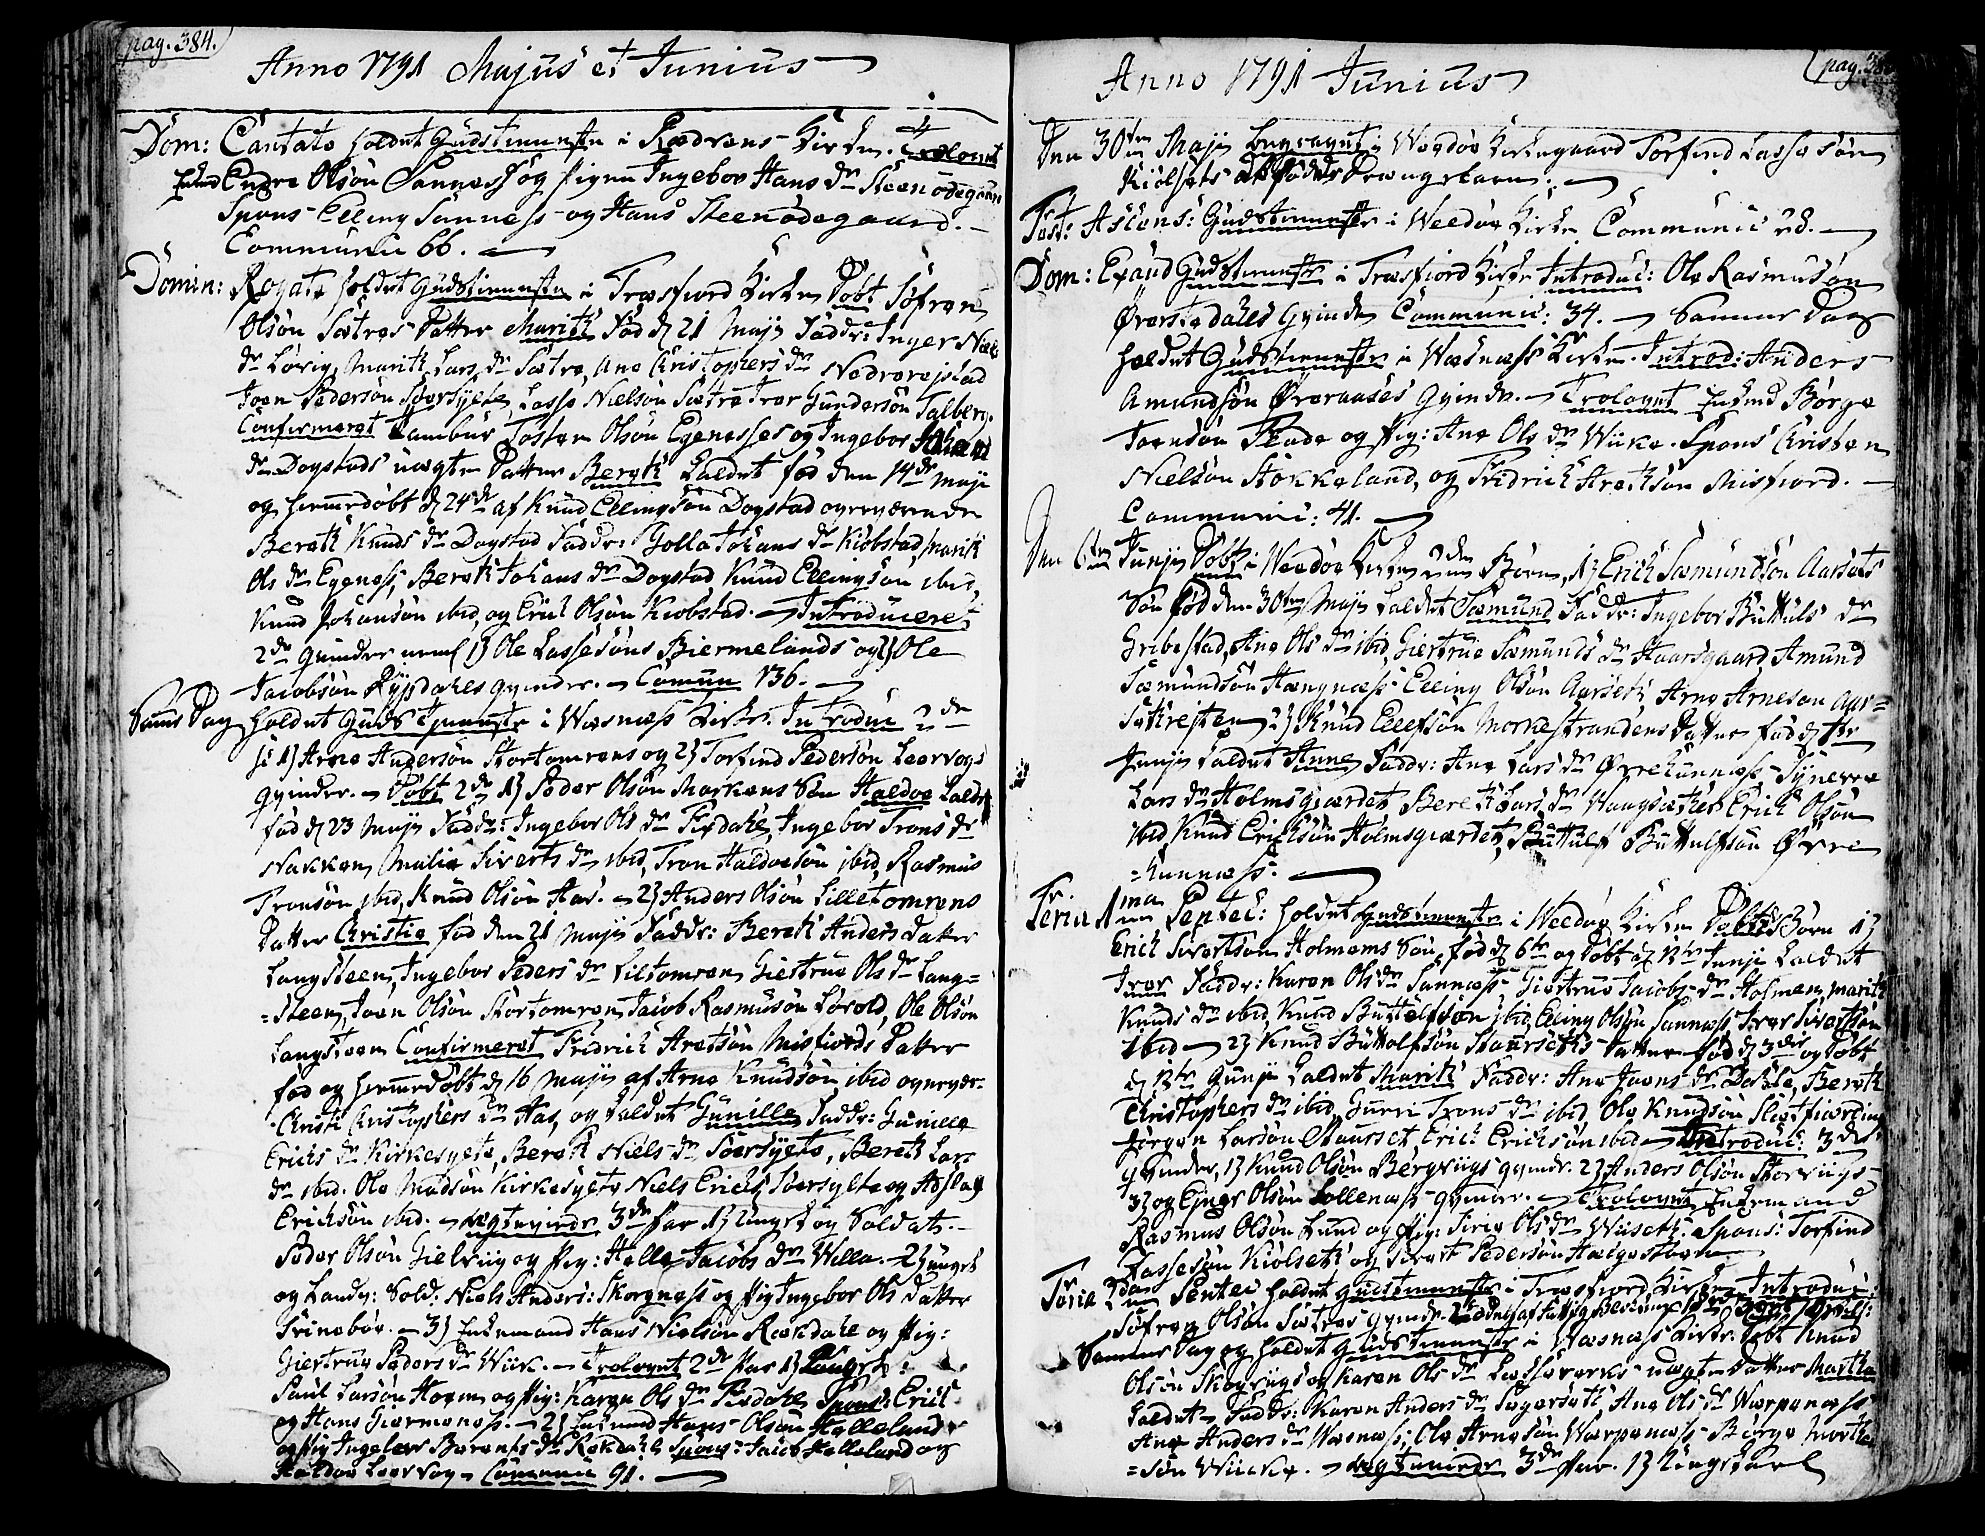 pag. 384.
Anno 1791 Majus et Junius
Dom: Cantate holdet Gudstienneste i Rødvens Kircke. Trolovet
Enkem Endre Olsøn Sannæs og pigen Ingebor Hans dr Steenødegaard
Spons Elling Sannæss og Hans Steenødegaard.
Communic 66.
Domin: Rogate holdet Gudstienneste i Træsfiord Kircke Døbt Siøfren
Olsøn Sætres Datter Marith fød d 21 Maji Faddr: Inger Niels
dr Løvig, Marith Lars dr Sætre, Ane Christophers dr Nedrevestad
Joen Pedersøn Soersylte, Lasse Nielsøn Sætre Iver Gundersøn Talberg.
Confirmeret Tambur Tosten Olsøn Egenesses og Ingebor Johans
dr Dogstads uægte Datter Bereth kaldet fød den 14de Maji
og hiemedøbt d 24de af Knud Ellingsøn Dogstad nærværende
Bereth Knuds dr Dogstad Faddr: Golla Johans dr Kiobstad, Marith
Ols dr Egeness, Bereth Johans dr Dogstad Knud Ellingsøn ibid,
Knud Johansøn ibid, og Erich Olsøn Kiobstad. Introduceret
2de Qvinder neml 1) Ole Lassesøns Biermelands og 2) Ole
Jacobsøn Rypdahls qvinder. Comun 136.
Samme Dag holdet Guds Tienneste i Wæsnæss Kircke. Introduc 2de
si 1) Arne Andersøn Stortomrens og 2) Torfind Pedersøn Leervogs
qvinder. Døbt 2de 1) Peder Olsøn Markens Søn Haldoe kaldet
fød d 23 Maji Faddr: Ingebor Ols dr Fixdahl, Ingebor Trons dr
Nakken, Malie Siverts dr ibid, Tron Haldoesøn ibid, Rasmus
Tronsøn ibid, Knud Olsøn Aas. 2) Anders Olsøn Lilletomrens
Datter Christie fød den 21 Maji Faddr: Bereth Anders Datter
Langsteen, Ingebor Peders dr Liltomren, Giertrue Ols dr Lang=
=Steen, Joen Olsøn Stortomren, Jacob Rasmusøn Løvold, Ole Olsøn
Langsteen Confirmeret Fridrich Aretsøn Misfiords Datter
fød og hiemedøbt d 16 Maji af Arne Knudsøn ibid nærvær:
Christi Christophers dr Aas, og kaldet Gunille Faddr: Gunille
Erichs dr Kirkesylte, Bereth Niels dr Soersylte, Bereth Lars
dr ibid. Ole Madsøn Kirkesylte Niels Erichs Soersylte og Asslag
Erichsøn ibid. ægteviede 3de Par 1) ungk og Soldat.
Peder Olsøn Gielsvig og Pig: Helle Jacobs dr Villa. 2) ungk
og Landv: Sold. Niels Anders: Skorgness og Pig Ingebor Ols Datter
Trinebør. 3) Enkemand Hans Nielsøn Rækdahl og Pig:
Giertrug Peders dr Wiik. Trolovet 2de Par 1) Ungk
Paul Larsøn Hoem og Pig: Karen Ols dr Fixdahl Spons: Erich
og Hans Giærmenes. 2) Enkemand Hans Olsøn Helleland
og Pig Ingebor Berents dr Rekdahl Spons: Jacob Helleland og
Haldoe Leervog Comunic 91.
pag. 385
Anno 1791 Junius
Den 30te Maji begravet i Weedøe Kirkegaard Torfind Lassesøn
Kiølsets dødfødde Drengebarn.
Fest: Ascens: Gudstienneste i Weedøe Kirke Communic 28.
Dom: Exaud Gudstienneste i Træsfiord Kirke Introduc: Ole Rasmusøn
Øverstedahls Qvinde Communic: 34. Samme Dag
holdet Gudstienneste i Wæsnæss Kirke. Introd: Anders
Amundsøn Øveraases Qvinde. Trolovet Enkemd Børge
Joensøn Flade og Pig: Ane Ols dr Wiike. Spons Christen
Nielsøn Stokkeland, og Fridrich Aretsøn Misfiord.
Communic: 41.
Den 6te Junji Døbt i Weedøe Kirke 2de Børn, 1) Erich Sæmundsøn Aarsets
Søn fød den 30te Maji kaldet Sæmund Faddr: Ingebor Buttuls dr
Gribestad, Ane Ols dr ibid, Giertrue Sæmunds dr Haarsgaard Amund
Sæmundsøn Hængnæss Elling Olsøn Aarseth, Arne Arnesøn Aar=
Sethreiten 2) Knud Ellefsøn Morkestrandens Datter fød d 1te
Junji kaldet Anne Faddr: Ane Lars dr Øvrekunnæss Synneve
Lars dr Holmsgiærdet Bereth Lars dr Vaagsæther Erich Olsøn
ibid, Knud Erichsøn Holmsgiærdet, Buttulf Buttulfsøn Øvre
=Kunnæss.
Feria 1ma Pentec: holdet Gudstienneste i Weedøe Kirke Døbt 2de Børn 1)
Erich Sivertsøn Holmems Søn, fød d 6te og døbt d 12te Junji kaldet
Iver Faddr: Karen Ols dr Sannæss Giertrue Jacobs dr Holmen, Marith
Knuds dr ibid, Knud Buttulfsøn ibid, Elling Olsøn Sannæss, Iver Sivertsøn
ibid 2) Knud Buttolfsøn Staursetts Datter fød d 3die og døbt
d 12te Junji kaldet Marith Faddr: Ane Joens dr Dahle, Bereth
Christophers dr ibid, Gurri Trons dr ibid Ole Knudsøn Sletfiærding
Jørgen Larsøn Staurset Erich Erichsøn ibid Introduc: 3de
qvinder, 1) Knud Olsøn Bergviigs qvinde. 2) Anders Olsøn Storviigs
3) og Einer Olsøn Sollenæss qvinde. Trolovet Enkemand
Rasmus Olsøn Lund og Pig: Siri Ols dr Wiiseth: Spons: Torfind
Lassesøn Kiølseth og Sivert Pedersøn Hælgestoen
Feria 2da Pentec holdet Gudstienneste i Træsfiord Kirke, Introduc:
Siøfren Olsøn Sætres qvinde.
Samme Dag og holdet Gudstienneste i Wæsnæss Kirke. Døbt Knud
Olsøn Skeviigs og Karen Ols dr Lasseværks uægte Datter Martha
kaldet Faddr: Karen Anders dr Fægerseth, Ane Ols dr Værpenæss
Ane Anders dr Wæsnæss, Ole Arnesøn Værpenæss Børge Morten
=søn Wiike. ægteviede 3de Par. 1) Ungkarl